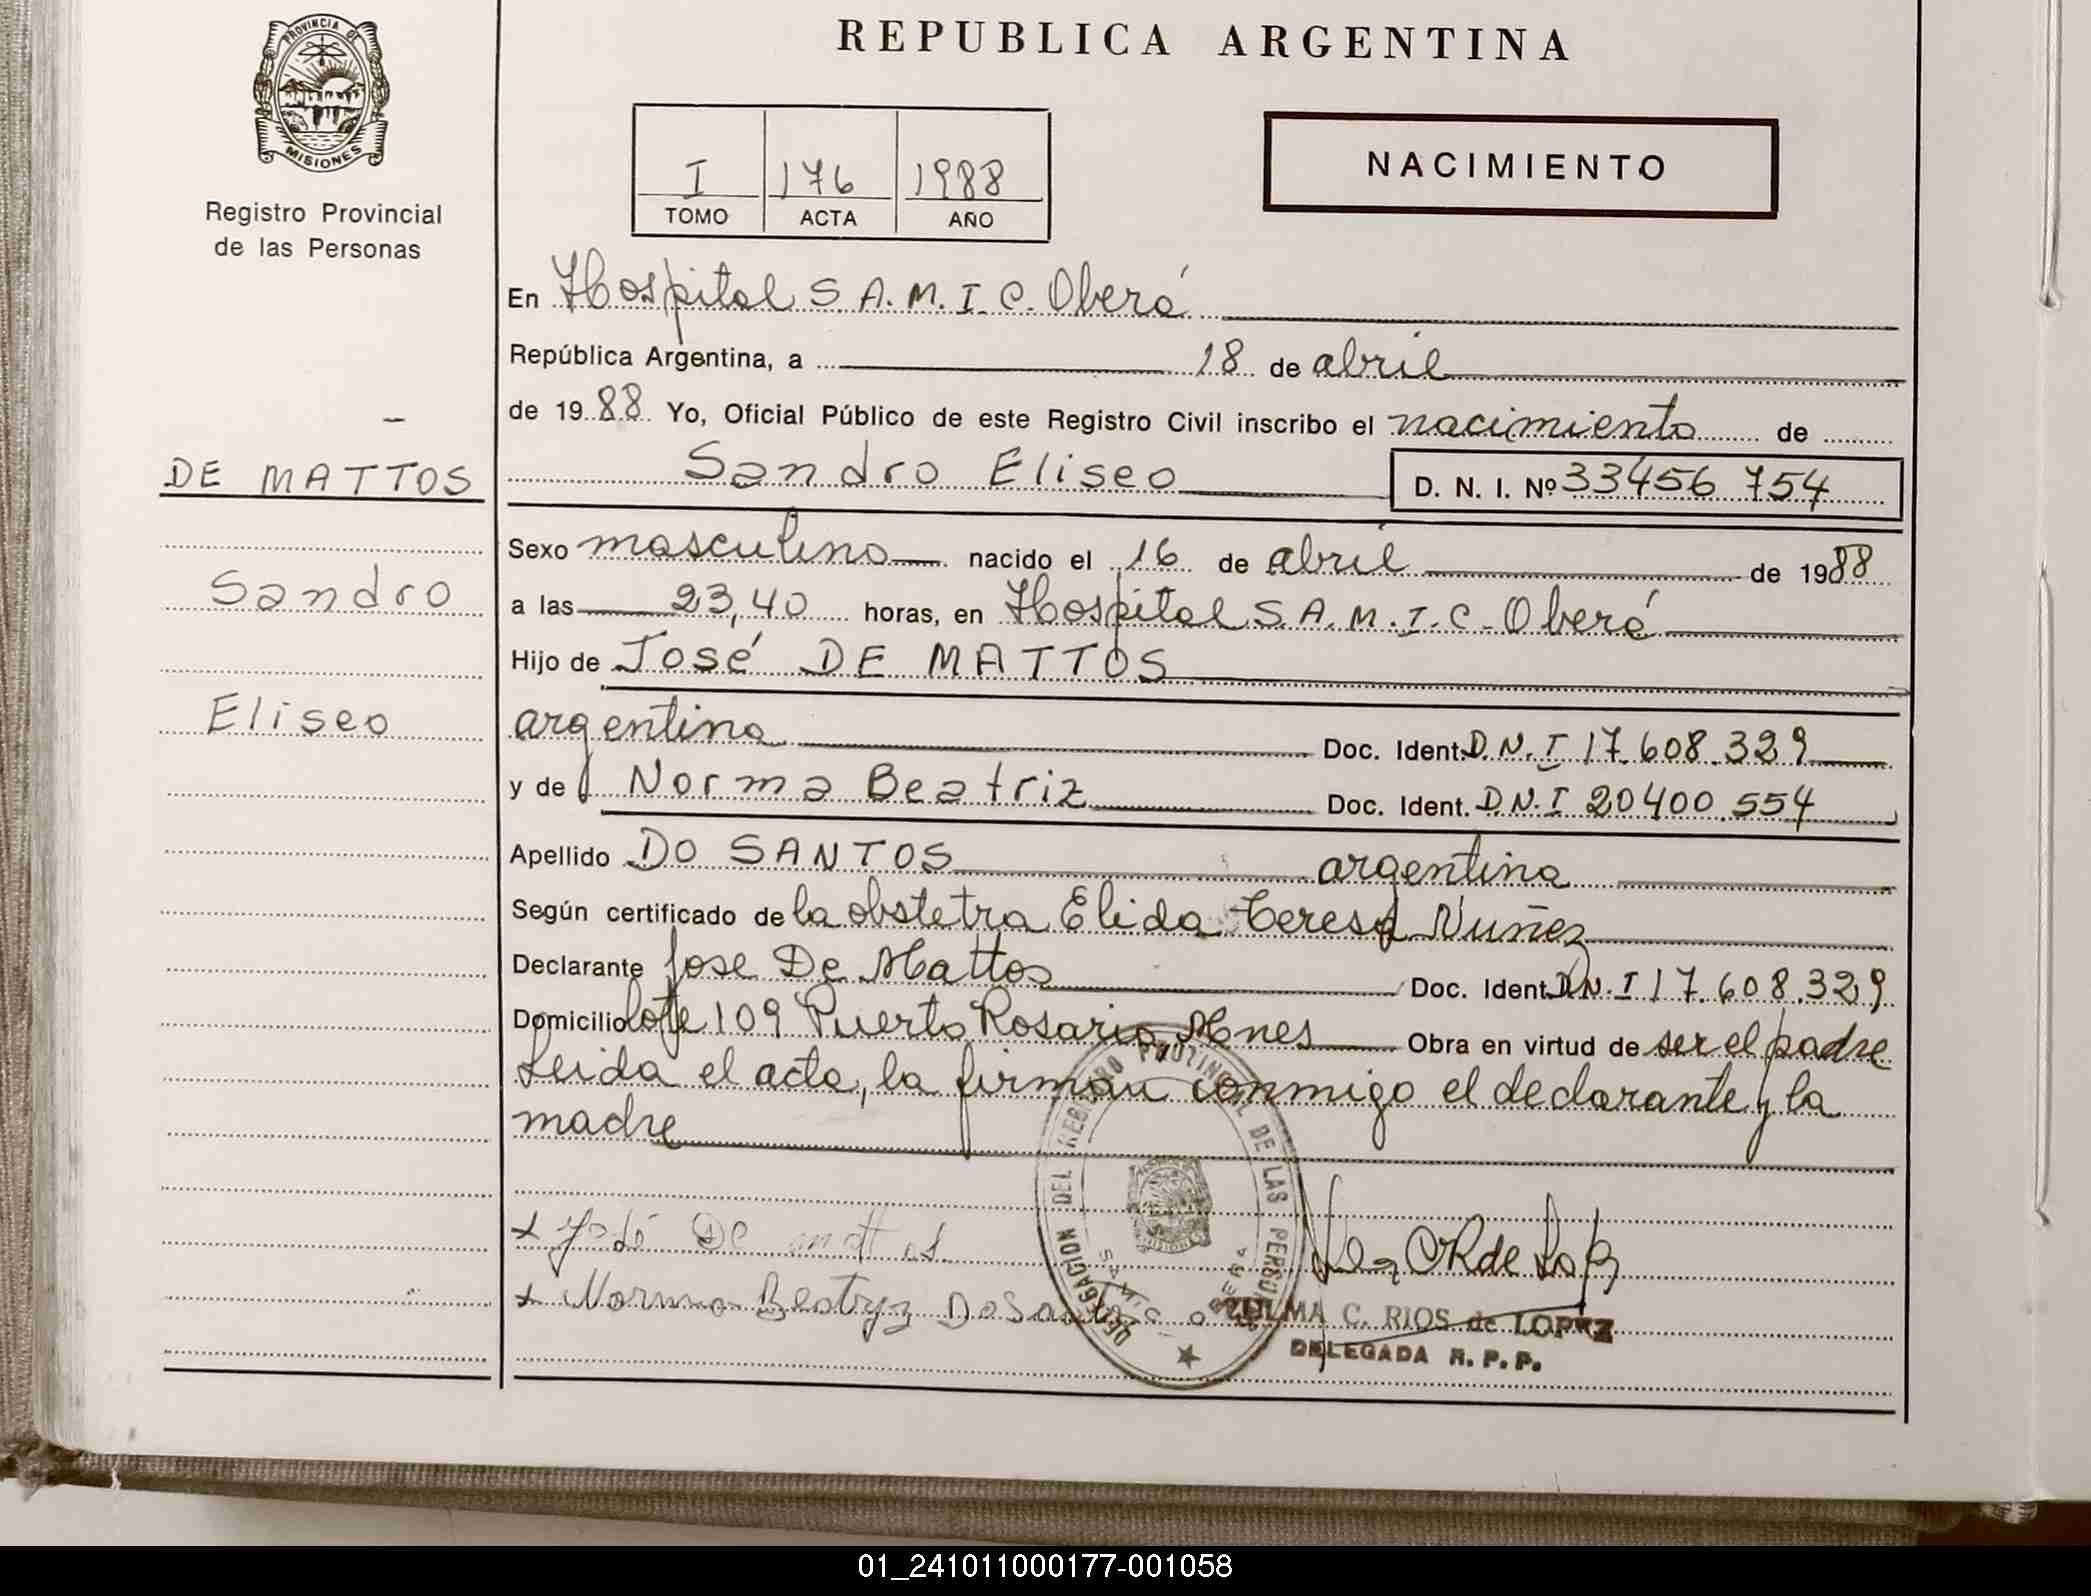 REPUBLICA ARGENTINA
PROVINCIA DE
MISIONES
Registro Provincial
de las Personas
I 176 1988
TOMO ACTA AÑO
NACIMIENTO
En Hospital S.A.M.I.C. Oberá
República Argentina, a 18 de abril
de 1988 Yo, Oficial Público de este Registro Civil inscribo el nacimiento de
DE MATTOS
Sandro Eliseo D. N. I. Nº 33456 754
Sexo masculino nacido el 16 de abril de 1988
Sandro
a las 23,40 horas, en Hospital S.A.M.I.C. Oberá
Hijo de José DE MATTOS
Eliseo
argentina Doc. Ident. D.N.I 17.608.329
y de Norma Beatriz Doc. Ident. D.N.I 20400.554
Apellido DO SANTOS argentina
Según certificado de la obstetra Elida Teresa Nuñez
Declarante Jose De Mattos Doc. Ident. D.N.I 17.608.329
Domicilio lote 109 Puerto Rosario Mnes Obra en virtud de ser el padre
Leida el acta, la firman conmigo el declarante y la
madre
DELEGACION DEL REGISTRO PROVINCIAL DE LAS PERSONAS
S.A.M.I.C. OBERA
MISIONES
x José De mattos
x Norma Beatryz Do Santos
ZULMA C. RIOS de LOPEZ
DELEGADA R. P. P.
01_241011000177-001058